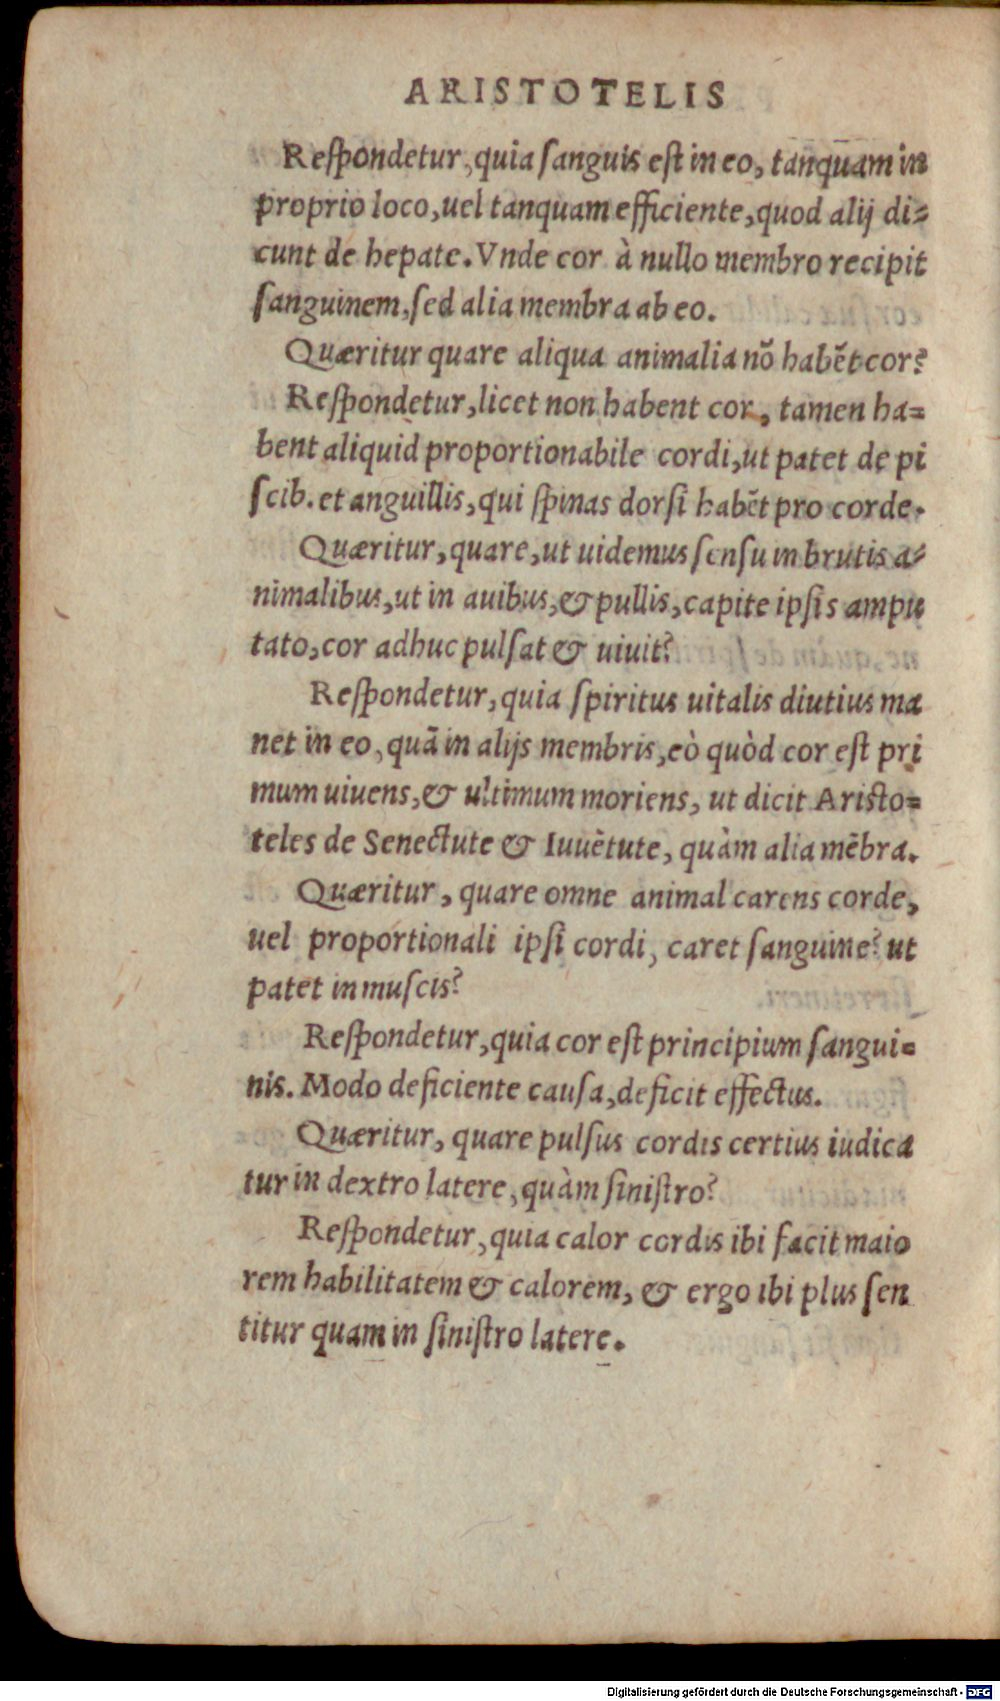 ARISTOTELIS
Reſpondetur, quia ſanguis eſt in eo, tanquam in
proprio loco, uel tanquam efficiente, quod alij di⸗
cunt de hepate. Vnde cor à nullo membro recipit
ſanguinem, ſed alia membra ab eo.
Quæritur quare aliqua animalia nõ habẽt cor?
Reſpondetur, licet non habent cor, tamen ha⸗
bent aliquid proportionabile cordi, ut patet de pi
ſcib. et anguillis, qui ſpinas dorſi habẽt pro corde.
Quæritur, quare, ut uidemus ſenſu in brutis a⸗
nimalibus, ut in auibus, & pullis, capite ipſis ampu
tato, cor adhuc pulſat & uiuit?
Reſpondetur, quia ſpiritus uitalis diutius ma
net in eo, quã in alijs membris, eò quòd cor eſt pri
mum uiuens, & ultimum moriens, ut dicit Ariſto⸗
teles de Senectute & Iuuẽtute, quàm alia mẽbra.
Quæritur, quare omne animal carens corde,
uel proportionali ipſi cordi, caret ſanguine? ut
patet in muſcis?
Reſpondetur, quia cor eſt principium ſangui⸗
nis. Modo deficiente cauſa, deficit effectus.
Quæritur, quare pulſus cordis certius iudica
tur in dextro latere, quàm ſiniſtro?
Reſpondetur, quia calor cordis ibi facit maio
rem habilitatem & calorem, & ergo ibi plus ſen
titur quam in ſiniſtro latere.
Digitalisierung gefördert durch die Deutsche Forschungsgemeinschaft - DFG